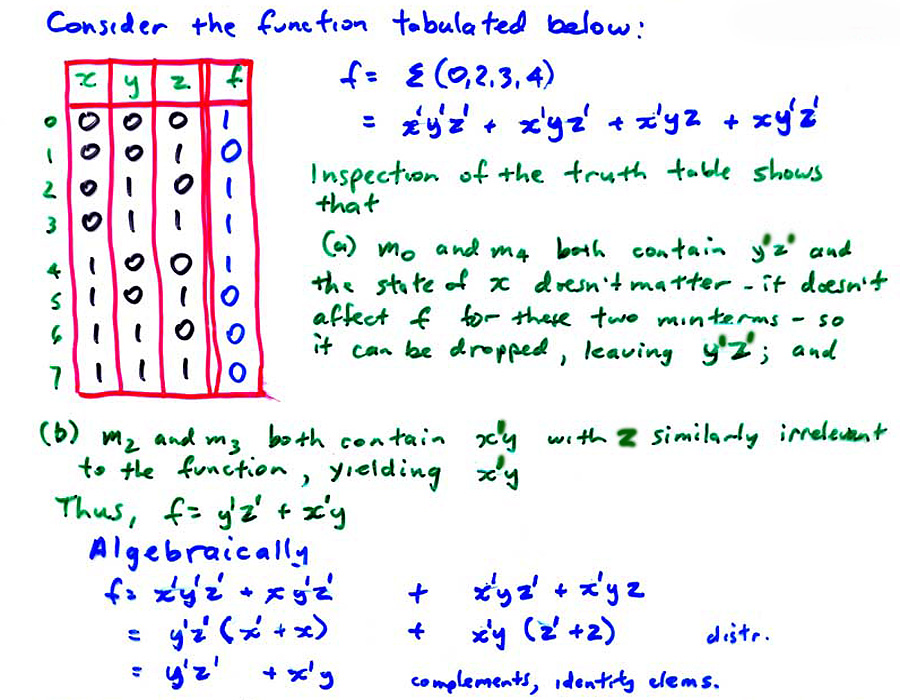 Consider the function tabulated below:
x y z f
0 0 0 0 1
1 0 0 1 0
2 0 1 0 1
3 0 1 1 1
4 1 0 0 1
5 1 0 1 0
6 1 1 0 0
7 1 1 1 0
f = Σ(0,2,3,4)
= x'y'z' + x'yz' + x'yz + xy'z'
Inspection of the truth table shows
that
(a) m0 and m4 both contain y'z' and
the state of x doesn't matter - it doesn't
affect f for these two minterms - so
it can be dropped, leaving y'z'; and
(b) m2 and m3 both contain x'y with z similarly irrelevent
to the function, yielding x'y
Thus, f = y'z' + x'y
Algebraically
f = x'y'z' + xy'z' + x'yz' + x'yz
= y'z'(x'+x) + x'y (z'+z) distr.
= y'z' + x'y complements, identity elems.